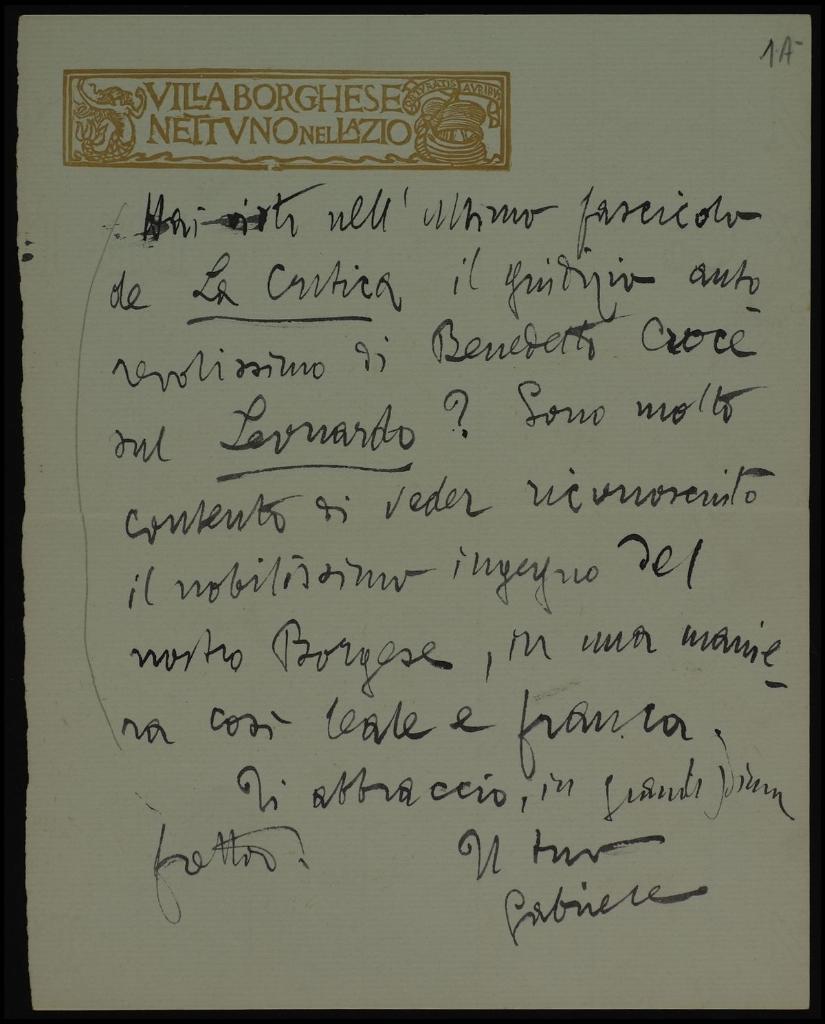 1A
VILLA BORGHESE
NETTVNO NEL LAZIO
Hai visto nell'ultimo fascicolo
de La Critica il giudizio auto-
revolissimo di Benedetto Croce
sul Leonardo? Sono molto
contento di veder riconosciuto
il nobilissimo ingegno del
nostro Borgese, in una manie-
ra così leale e franca.
Ti abbraccio, in grandissima
fretta.
Il tuo
Gabriele